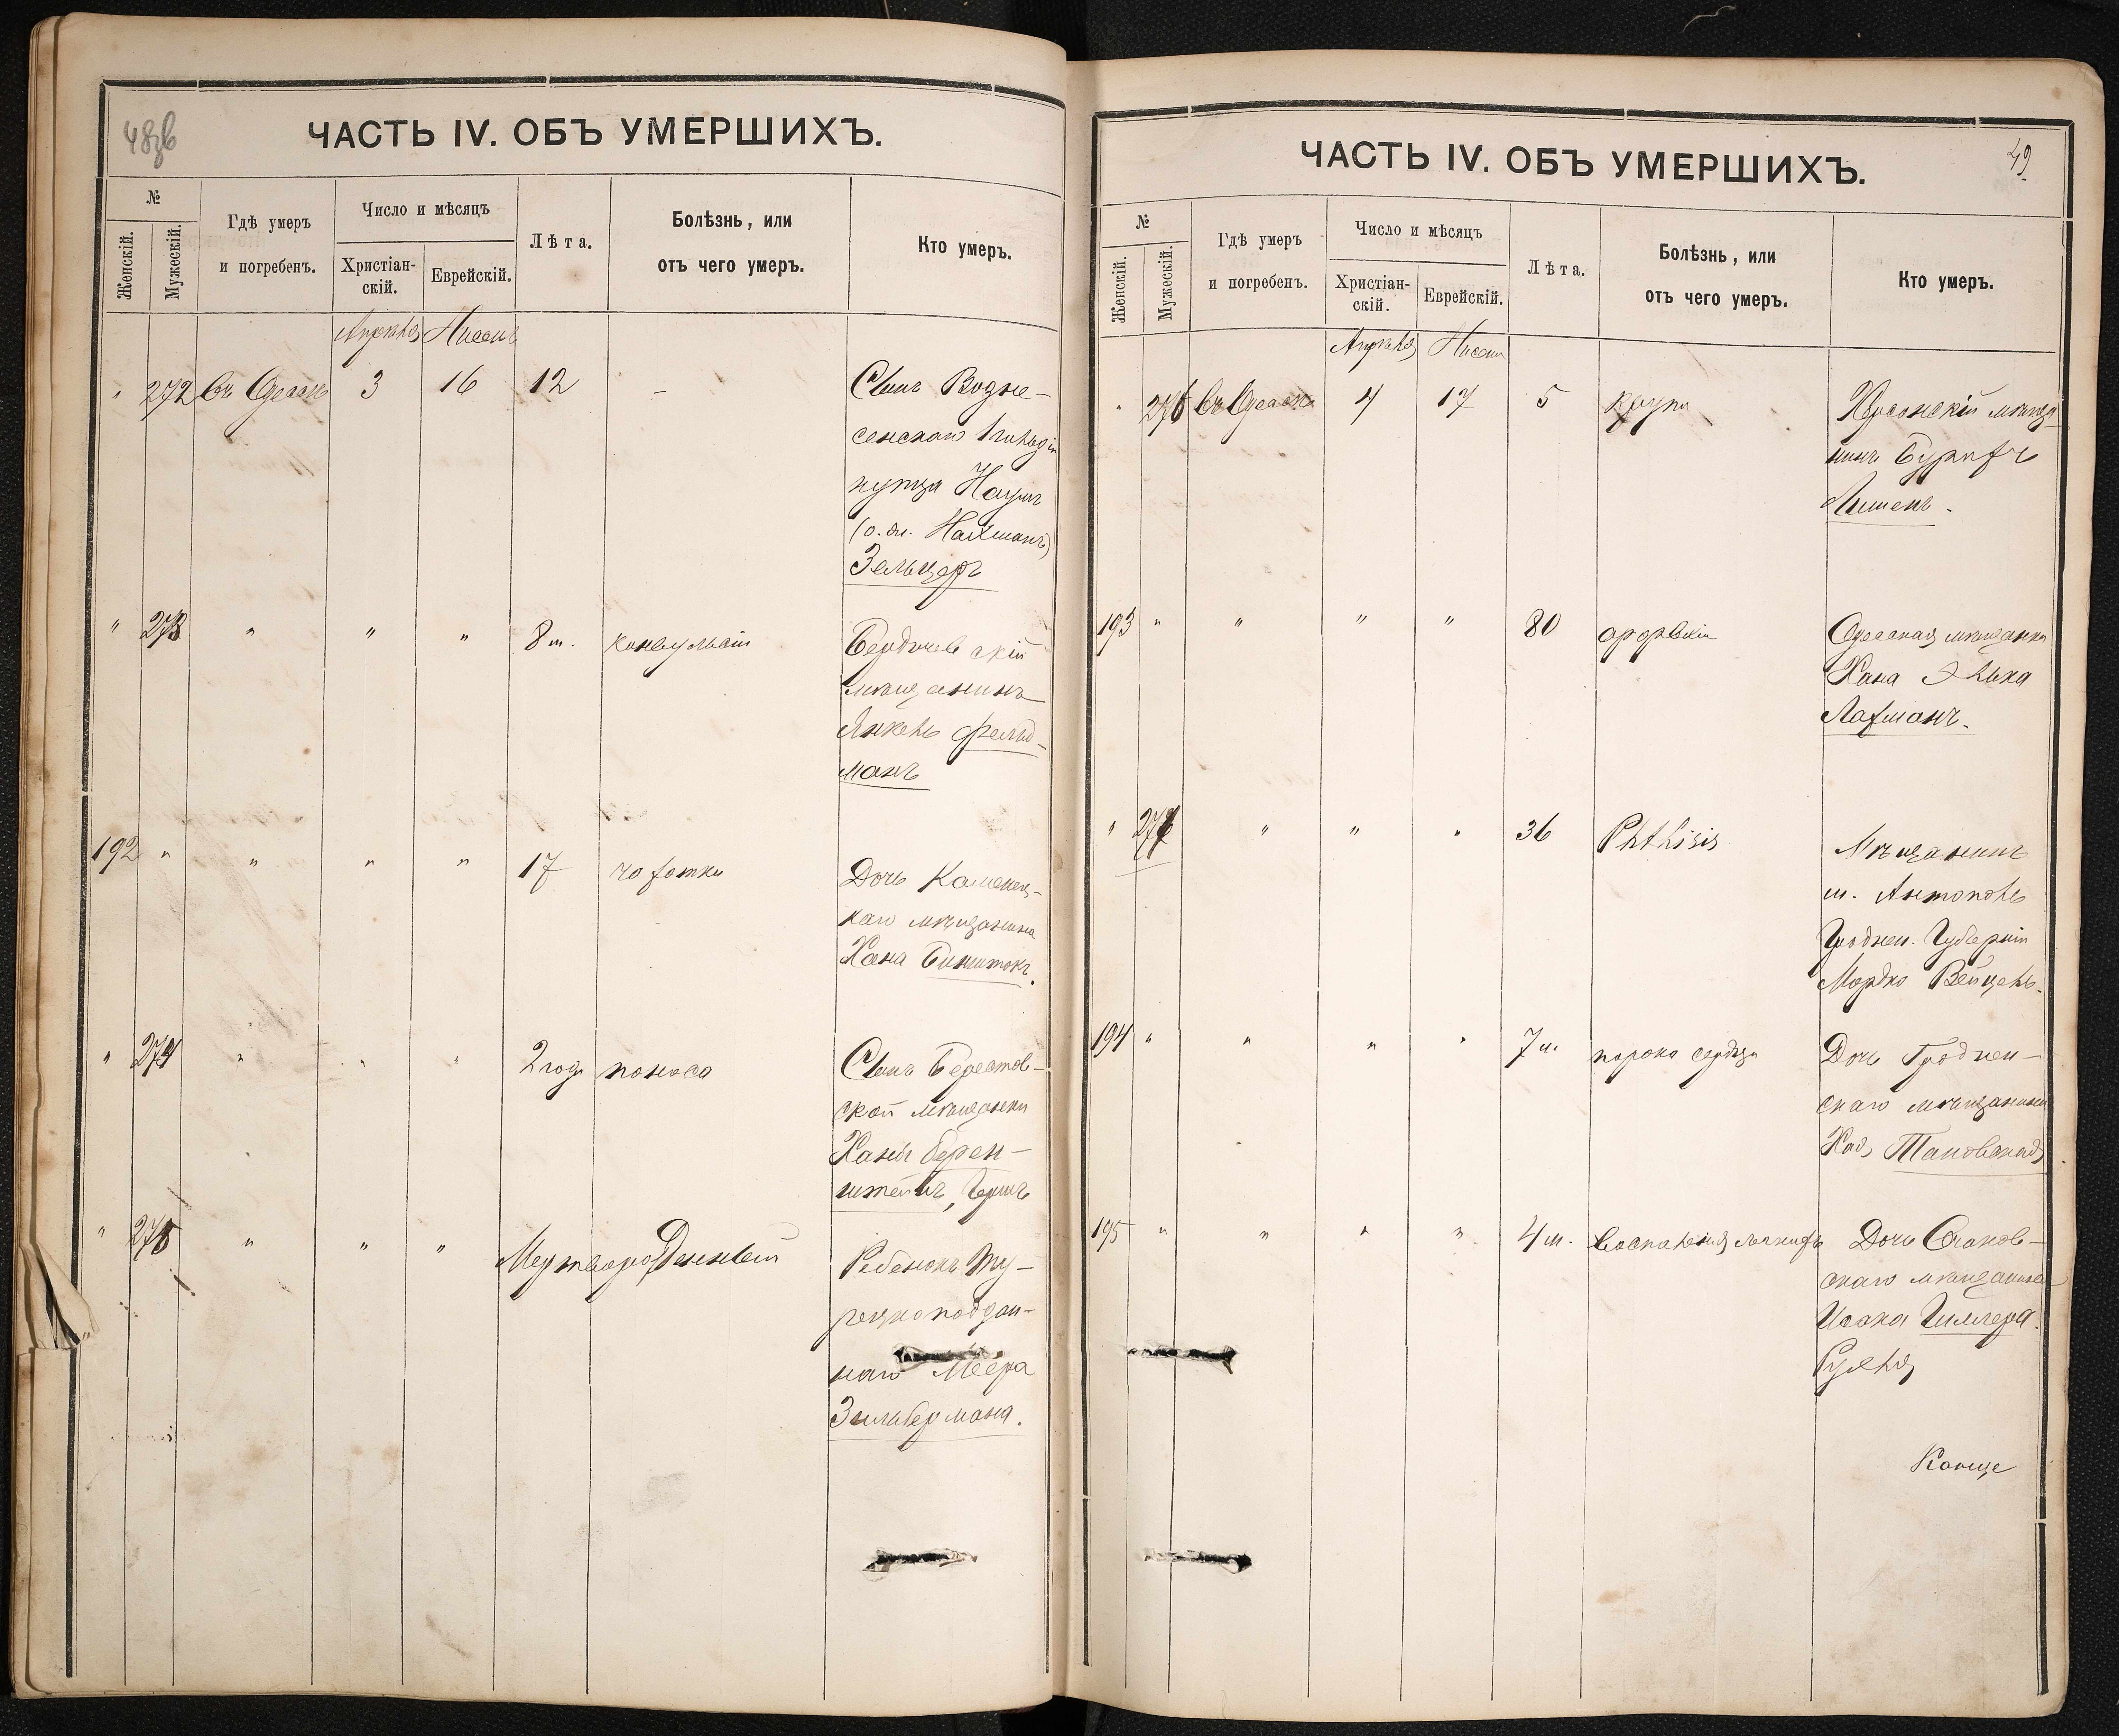 48зв
ЧАСТЬ IV. ОБЪ УМЕРШИХЪ.
№
Женскій.
Мужескій.
Гдѣ умеръ
и погребенъ.
Число и мѣсяцъ
Христіан-
скій.
Еврейскій.
Лѣта.
Болѣзнь, или
отъ чего умеръ.
Кто умеръ.
Апрѣля Нисенъ
" 272 въ Одессѣ 3 16 12 – Сынъ Возне-
сенскаго 1 гильдіи
купца Наумъ
(о. же Нахманъ)
Зельцеръ
" 273 " " " 8 м. конвульсіи Бердичевскій
мѣщанинъ
Янкель Фельд-
манъ
192 " " " " 17 чахотки Дочь Каменец-
каго мѣщанина
Хана Бинштокъ.
" 274 " " " 2 года поноса Сынъ Берестов-
ской мѣщанки
Ханы Берен-
штейнъ, Герш
" 275 " " " Мертворожденный Ребенокъ Ту-
рецкоподдан-
наго Меера
Зильбермана.
49.
ЧАСТЬ IV. ОБЪ УМЕРШИХЪ.
№
Женскій.
Мужескій.
Гдѣ умеръ
и погребенъ.
Число и мѣсяцъ
Христіан-
скій.
Еврейскій.
Лѣта.
Болѣзнь, или
отъ чего умеръ.
Кто умеръ.
Апрѣля Нисенъ
" 276 въ Одессѣ 4 17 5 крупъ Херсонскій мѣща-
нинъ Бурихъ
193 " " " " 80 Одесская мѣщанка
Хана Элька
Лахманъ.
" 277 " " " 36 Phthisis Мѣщанинъ
м. Антополь
Гроднен. Губерніи
Мордко Вейцель.
194 " " " " 7 м. порока сердца Дочь Гроднен-
скаго мѣщанина
Хая
195 " " " " 4 м. воспаленія легкихъ Дочь Очаков-
скаго мѣщанина
Исака Гиллера.
Рухля